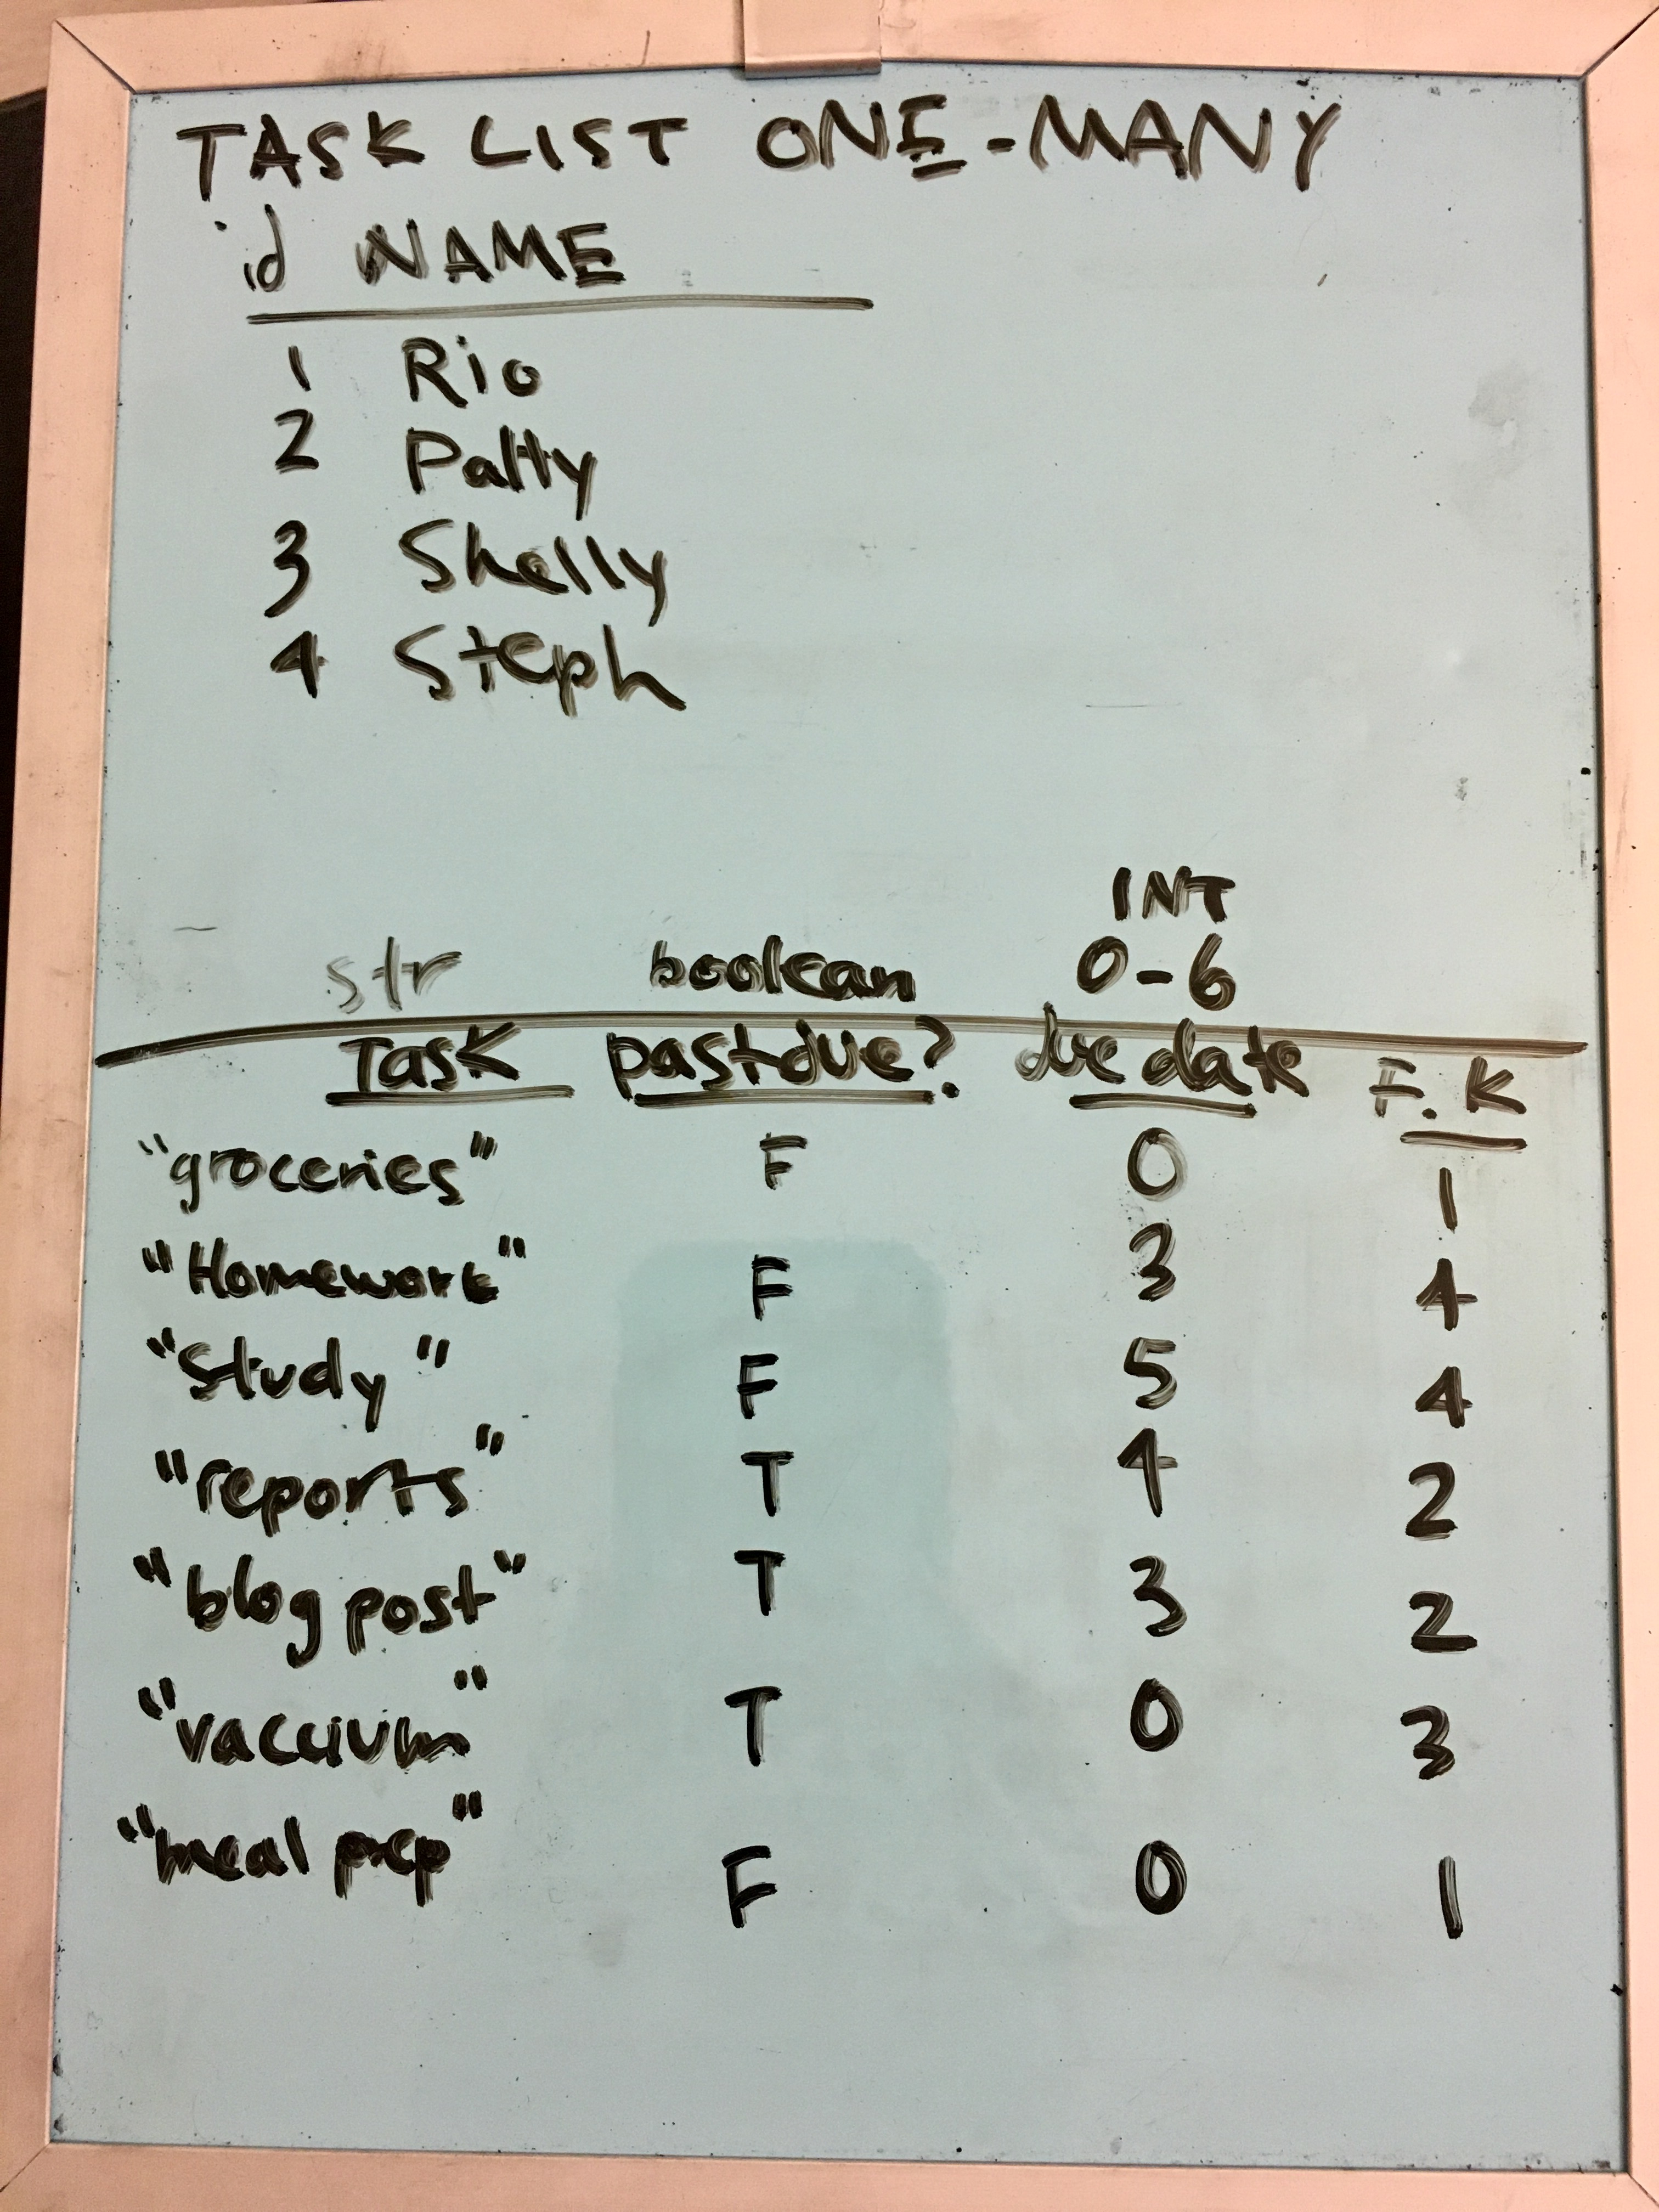 TASK LIST ONE-MANY
id NAME
1 Rio
2 Patty
3 Shelly
4 Steph
INT
str boolean 0-6
Task pastdue? due date F.K
"groceries" F 0 1
"Homework" F 3 4
"Study" F 5 4
"reports" T 4 2
"blog post" T 3 2
"vaccium" T 0 3
"meal prep" F 0 1